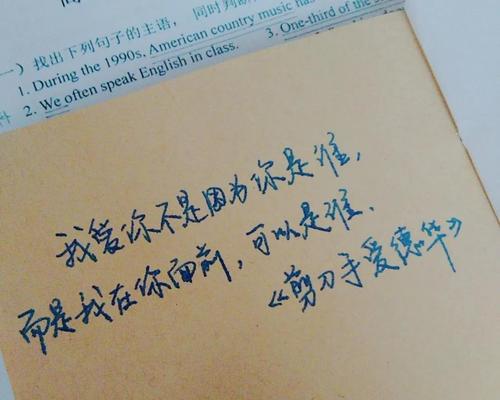 一）找出下列句子的主语，同时判断
1. During the 1990s, American country music has
2. We often speak English in class.
3. One-third of the
我爱你不是因为你是谁，
而是我在你面前，可以是谁．
《剪刀手爱德华》